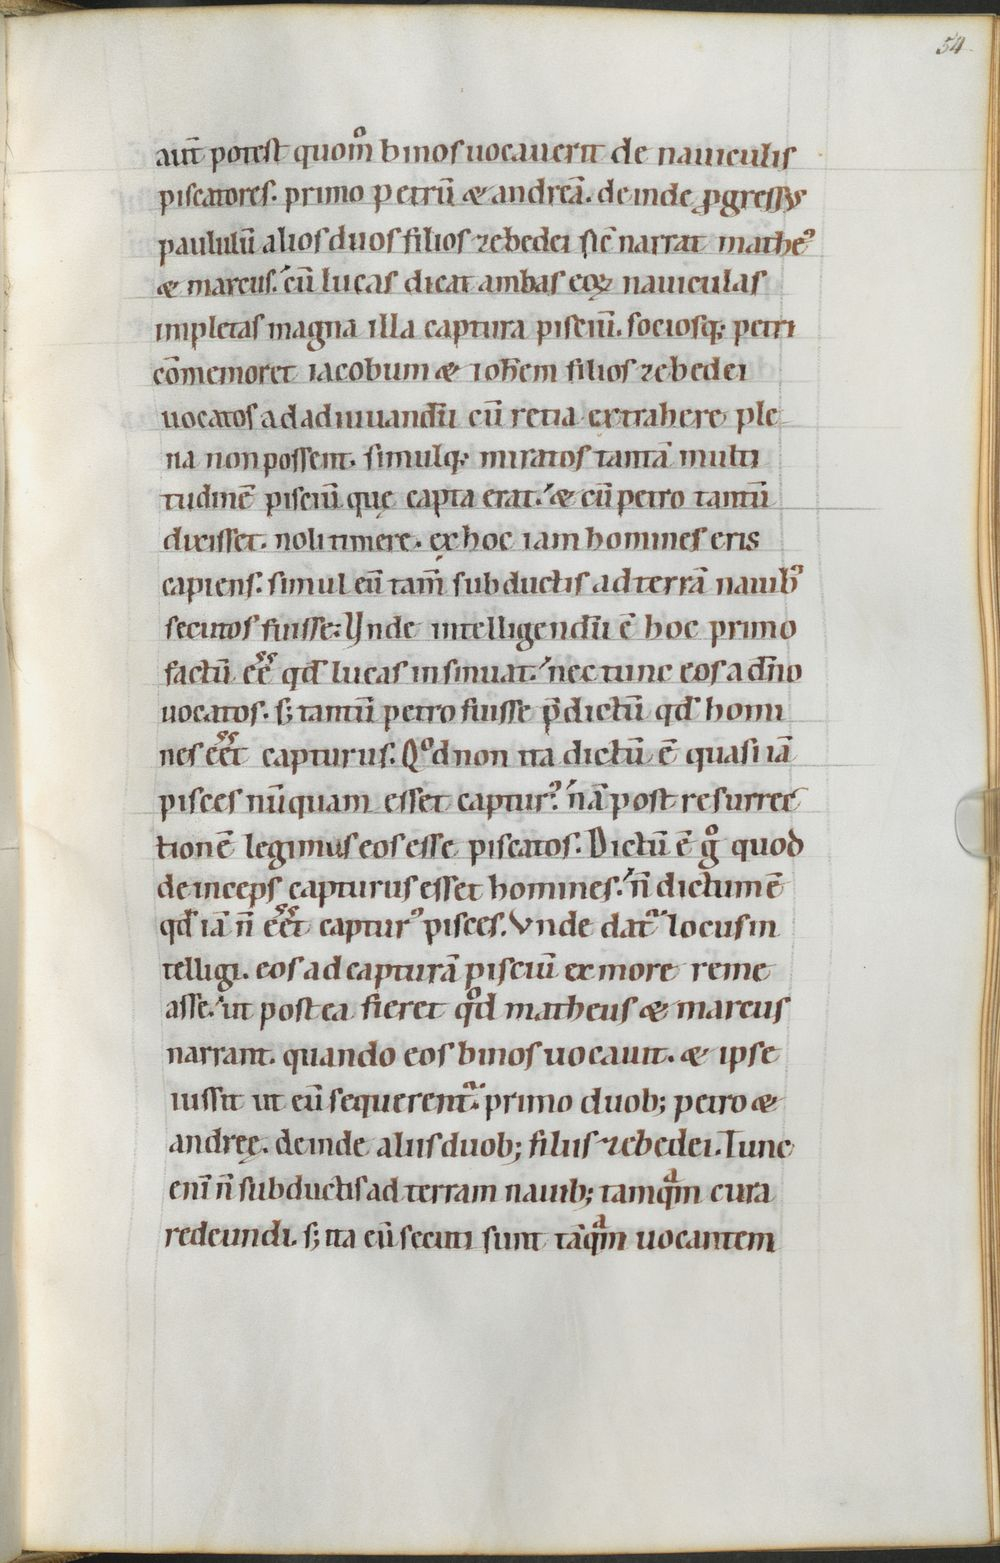 54
aut̄ potest quom̊ binos uocauerit de nauiculis
piscatores. primo petrū & andreā. deinde ꝓgressꝰ
paululū alios duos filios zebedei sic̄ narrat mathe᷒
& marcus. cū lucas dicat ambas eoꝝ nauiculas
impletas magna illa captura pisciū. sociosq; petri
cōmemoret iacobum & ioh̄em filios zebedei
uocatos ad adiuuandū cū retia extrahere ple
na non possent. simulq; miratos tantā multi
tudinē pisciū quę capta erat. & cū petro tantū
dixisset. noli timere. ex hoc iam homines eris
capiens. simul eū tam̄ subductis ad terrā nauib᷒
secutos fuisse; Vnde intelligendū ē hoc primo
factū eē̄ qd̄ lucas insinuat. nec tunc eos a dn̄o
uocatos. s; tantū petro fuisse p̄dictū qd̄ homi
nes eēt capturus. Qͦd non ita dictū ē quasi iā
pisces nūquam esset captur᷒. nā post resurrec
tionē legimus eos esse piscatos. Dictū ē gͦ quod
deinceps capturus esset homines. n̄ dictum ē
qd̄ iā n̄ eēt captur᷒ pisces. Vnde datᷓ locus in
telligi. eos ad capturā pisciū ex more reme
asse. ut postea fieret qͦd matheus & marcus
narrant. quando eos binos uocauit. & ipse
iussit ut eū sequerentᷓ. primo duob; petro &
andreę. deinde aliis duob; filiis zebedei. Tunc
eni̅ n̄ subductis ad terram nauib; tamqᷓm cura
redeundi. s; ita eū secuti sunt tāqᷓm uocantem